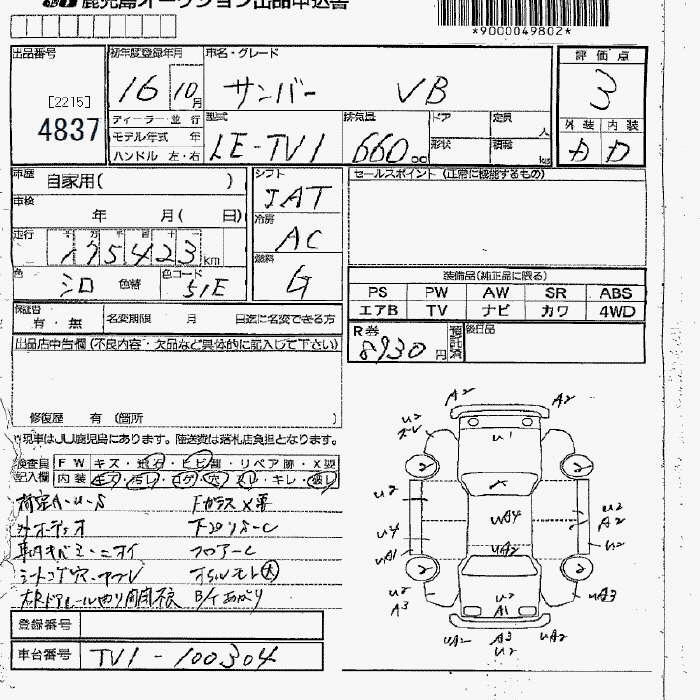 鹿児島オークション出品申込書
*9000049802*
出品番号 初年度登録年月 車名・グレード 評価点
[2215] 16 10月 サンバー VB 3
4837 ディーラー・並行 型式 排気量 ドア 定員 人 外装 内装
モデル年式 年 LE-TV1 660cc 形状 積載 kg D D
ハンドル 左・右
車歴 自家用( ) シフト セールスポイント (正常に機能するもの)
IAT
車検 年 月( 日) 冷房
AC
走行 175423km 燃料
G
色 シロ 色替 色コード 51E 装備品(純正品に限る)
PS PW AW SR ABS
エアB TV ナビ カワ 4WD
保証書 有・無 名変期限 月 日迄に名変できる方 R券 8930円 預託済 後日品
出品店申告欄(不良内容・欠品など具体的に記入して下さい)
修復歴 有 (箇所 )
*現車はJU鹿児島にあります。陸送費は落札店負担となります。
検査員 FW キズ・飛石・ヒビ割・リペア跡・X要
記入欄 内装 キズ・汚レ・コゲ・穴・スレ・キレ・破レ
荷室A・U・S Fガラス×要
オーディオ 下回りS-C
車内キズ・ニオイ フロアーC
シートコゲ穴 オイルモレ大
登録番号
車台番号 TV1-100304
A2 A2
U2
U1
2 2
U2 UA4 U2
A2
U4 U2
UA1 UA2
2 2
U2 U2 UA3
A3 A1
UA2 A3 UA2
U2